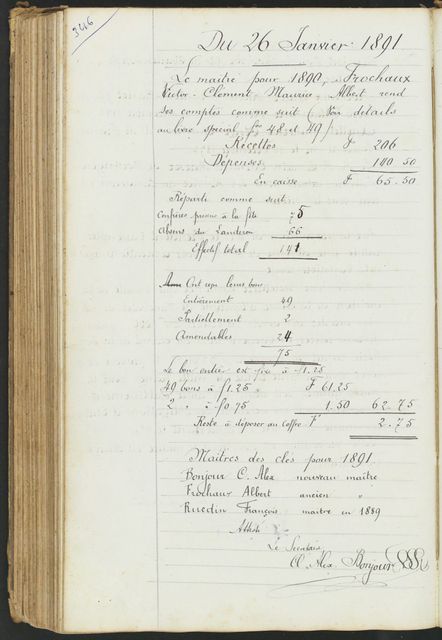 346
Du 26 Janvier 1891
Le maître pour 1890, Frochaux
Victor-Clement Maurice Albert rend
ses comptes comme suit (Voir détails
au livre spécial fos 48 et 49)
Recettes F 206
Dépenses 140 50
En caisse F 65.50
Réparti comme suit
Confrères présens à la fête 75
Absens du Landeron 66
Effectif total 141
Ont reçu leurs bons
Entièrement 49
Partiellement 2
Amendables 24
75
Le bon entier est fixé à f1.25
49 bons à f1.25 F 61.25
2 " à f0 75 1.50 62.75
Reste à déposer au coffre F 2.75
Maîtres des clés pour 1891
Bonjour C. Alex nouveau maître
Frochaux Albert ancien "
Ruedin François maître en 1889
Atteste
Le Secrétaire
Cl. Alex Bonjour